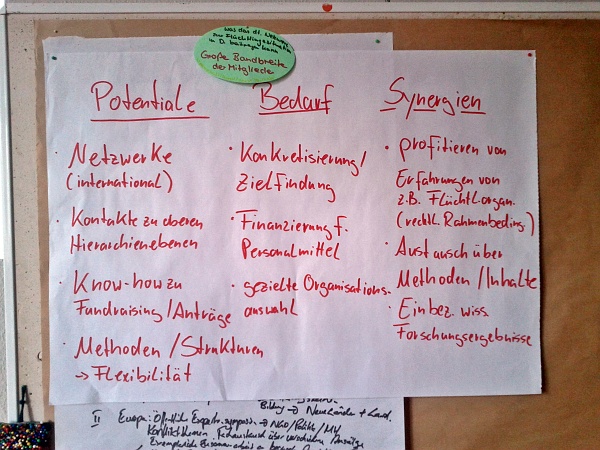 was das dt. Netzwerk
zur Flüchtlingssituation
in D. beitragen kann
Große Bandbreite
der Mitglieder
Potentiale
· Netzwerke
(international)
· Kontakte zu oberen
Hierarchienebenen
· Know-how zu
Fundraising/Anträge
· Methoden/Strukturen
→ Flexibilität
Bedarf
· Konkretisierung/
Zielfindung
· Finanzierung f.
Personalmittel
· gezielte Organisations-
auswahl
Synergien
· profitieren von
Erfahrungen von
z.B. Flüchtl.organ.
(rechtl. Rahmenbeding.)
· Austausch über
Methoden/Inhalte
· Einbez. wiss.
Forschungsergebnisse
Bildung →
II Europa: öffentlich
→ NGO/Politik/
über